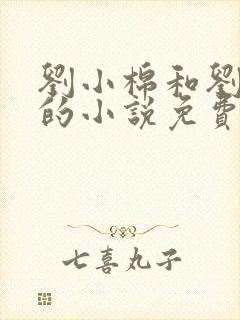 劉小棉和劉
的小說免費
七喜丸子